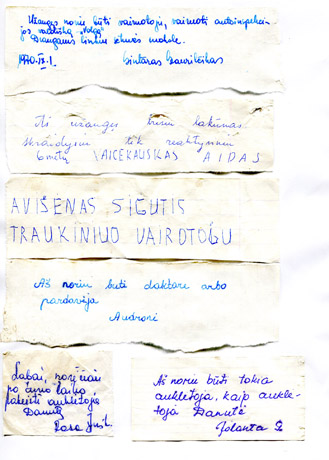 Užaugęs noriu būti vairuotoju, vairuoti autoinspekci-
jos valdišką „Volgą"
Draugams linkiu sėkmės moksle.
1970.IX.1. Gintaras Gavriliškas
Aš užaugęs būsiu lakūnas.
skraidysiu tik reaktyviniu
6 metų VAICEKAUSKAS AIDAS
AVIŠENAS SIGUTIS
TRAUKINIUO VAIROTOGU
Aš noriu būti daktare arbo
pardavėja
Audronė
Labai norėčiau
po darbo
pakeisti auklėtoją
Danutę
Rasa
Aš noriu būti tokia
auklėtoja, kaip aukle-
toja Danutė
Jolanta Ž